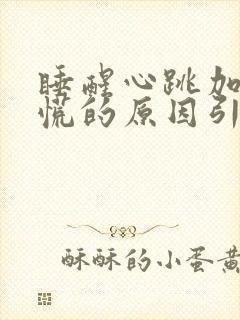 睡醒心跳加
慌的原因引
酥酥的小蛋黄